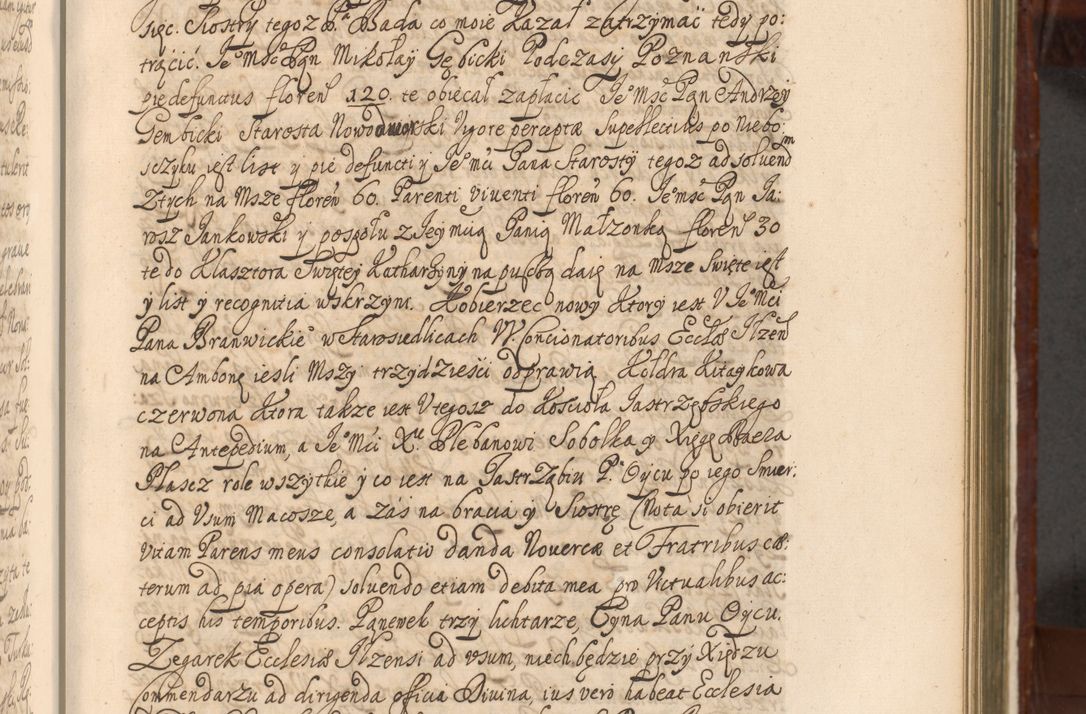 sięc. Siostry tegoz Pa Bada co moie kazał zatrzymać tedy po:
trącić. Je°msć Pan Mikołay Gębicki Podczasy Poznański
pie defunctus floren 120. te obiecał zapłacic Je°msć Pan Andrzey
Gembicki Starosta Nowodworski Vyore perceptæ Supellectilis po niebo:
sczyku iest list y pie defuncti y Je°mći Pana Starosty tegoz ad soluend
Ztych na Msze floren 60. Parenti viventi floren 60. Je°msć Pan Ja:
rosz Jankowski y pospołu z Jeymcią Panią Małzonką floren 30
te do Klasztora Swiętey Katharzyny na puscą daię na Msze Swięte iest
y list y recognitia w skrzyni. Kobierzec nowy ktory iest V Je°Mći
Pana Branwickie° w Starosiedlicach VV. Concionatoribus Ecclæ Ilzen
na Ambonę iesli Mszy trzydzieści odprawią Kołdra Kitaykowa
czerwona ktora takze iest V tegosz do Kościoła Jastrzębskiego
na Antepedium, a Je°Mći Xu. Plebanowi Sobolka y Xięgę
Plascz role wszytkie y co iest na Jastrząbiu P. Oycu po iego Smier:
ci ad Vsum Macosze, a zás na bracia y Siostrę (Nota si obierit
vitam Parens meus consolatio danda Novercæ et Fratribus cæ:
terum ad pia opera) solvendo etiam debita mea pro Victualibus ac:
ceptis his temporibus. Panewek trzy lichtarze, Cyna Panu Oycu.
Zegarek Ecclesiæ Ilzensi ad vsum, niech będzie przy Xiędzu
Commendarzu ad dirigenda officia Divina, ius vero habeat Ecclesia